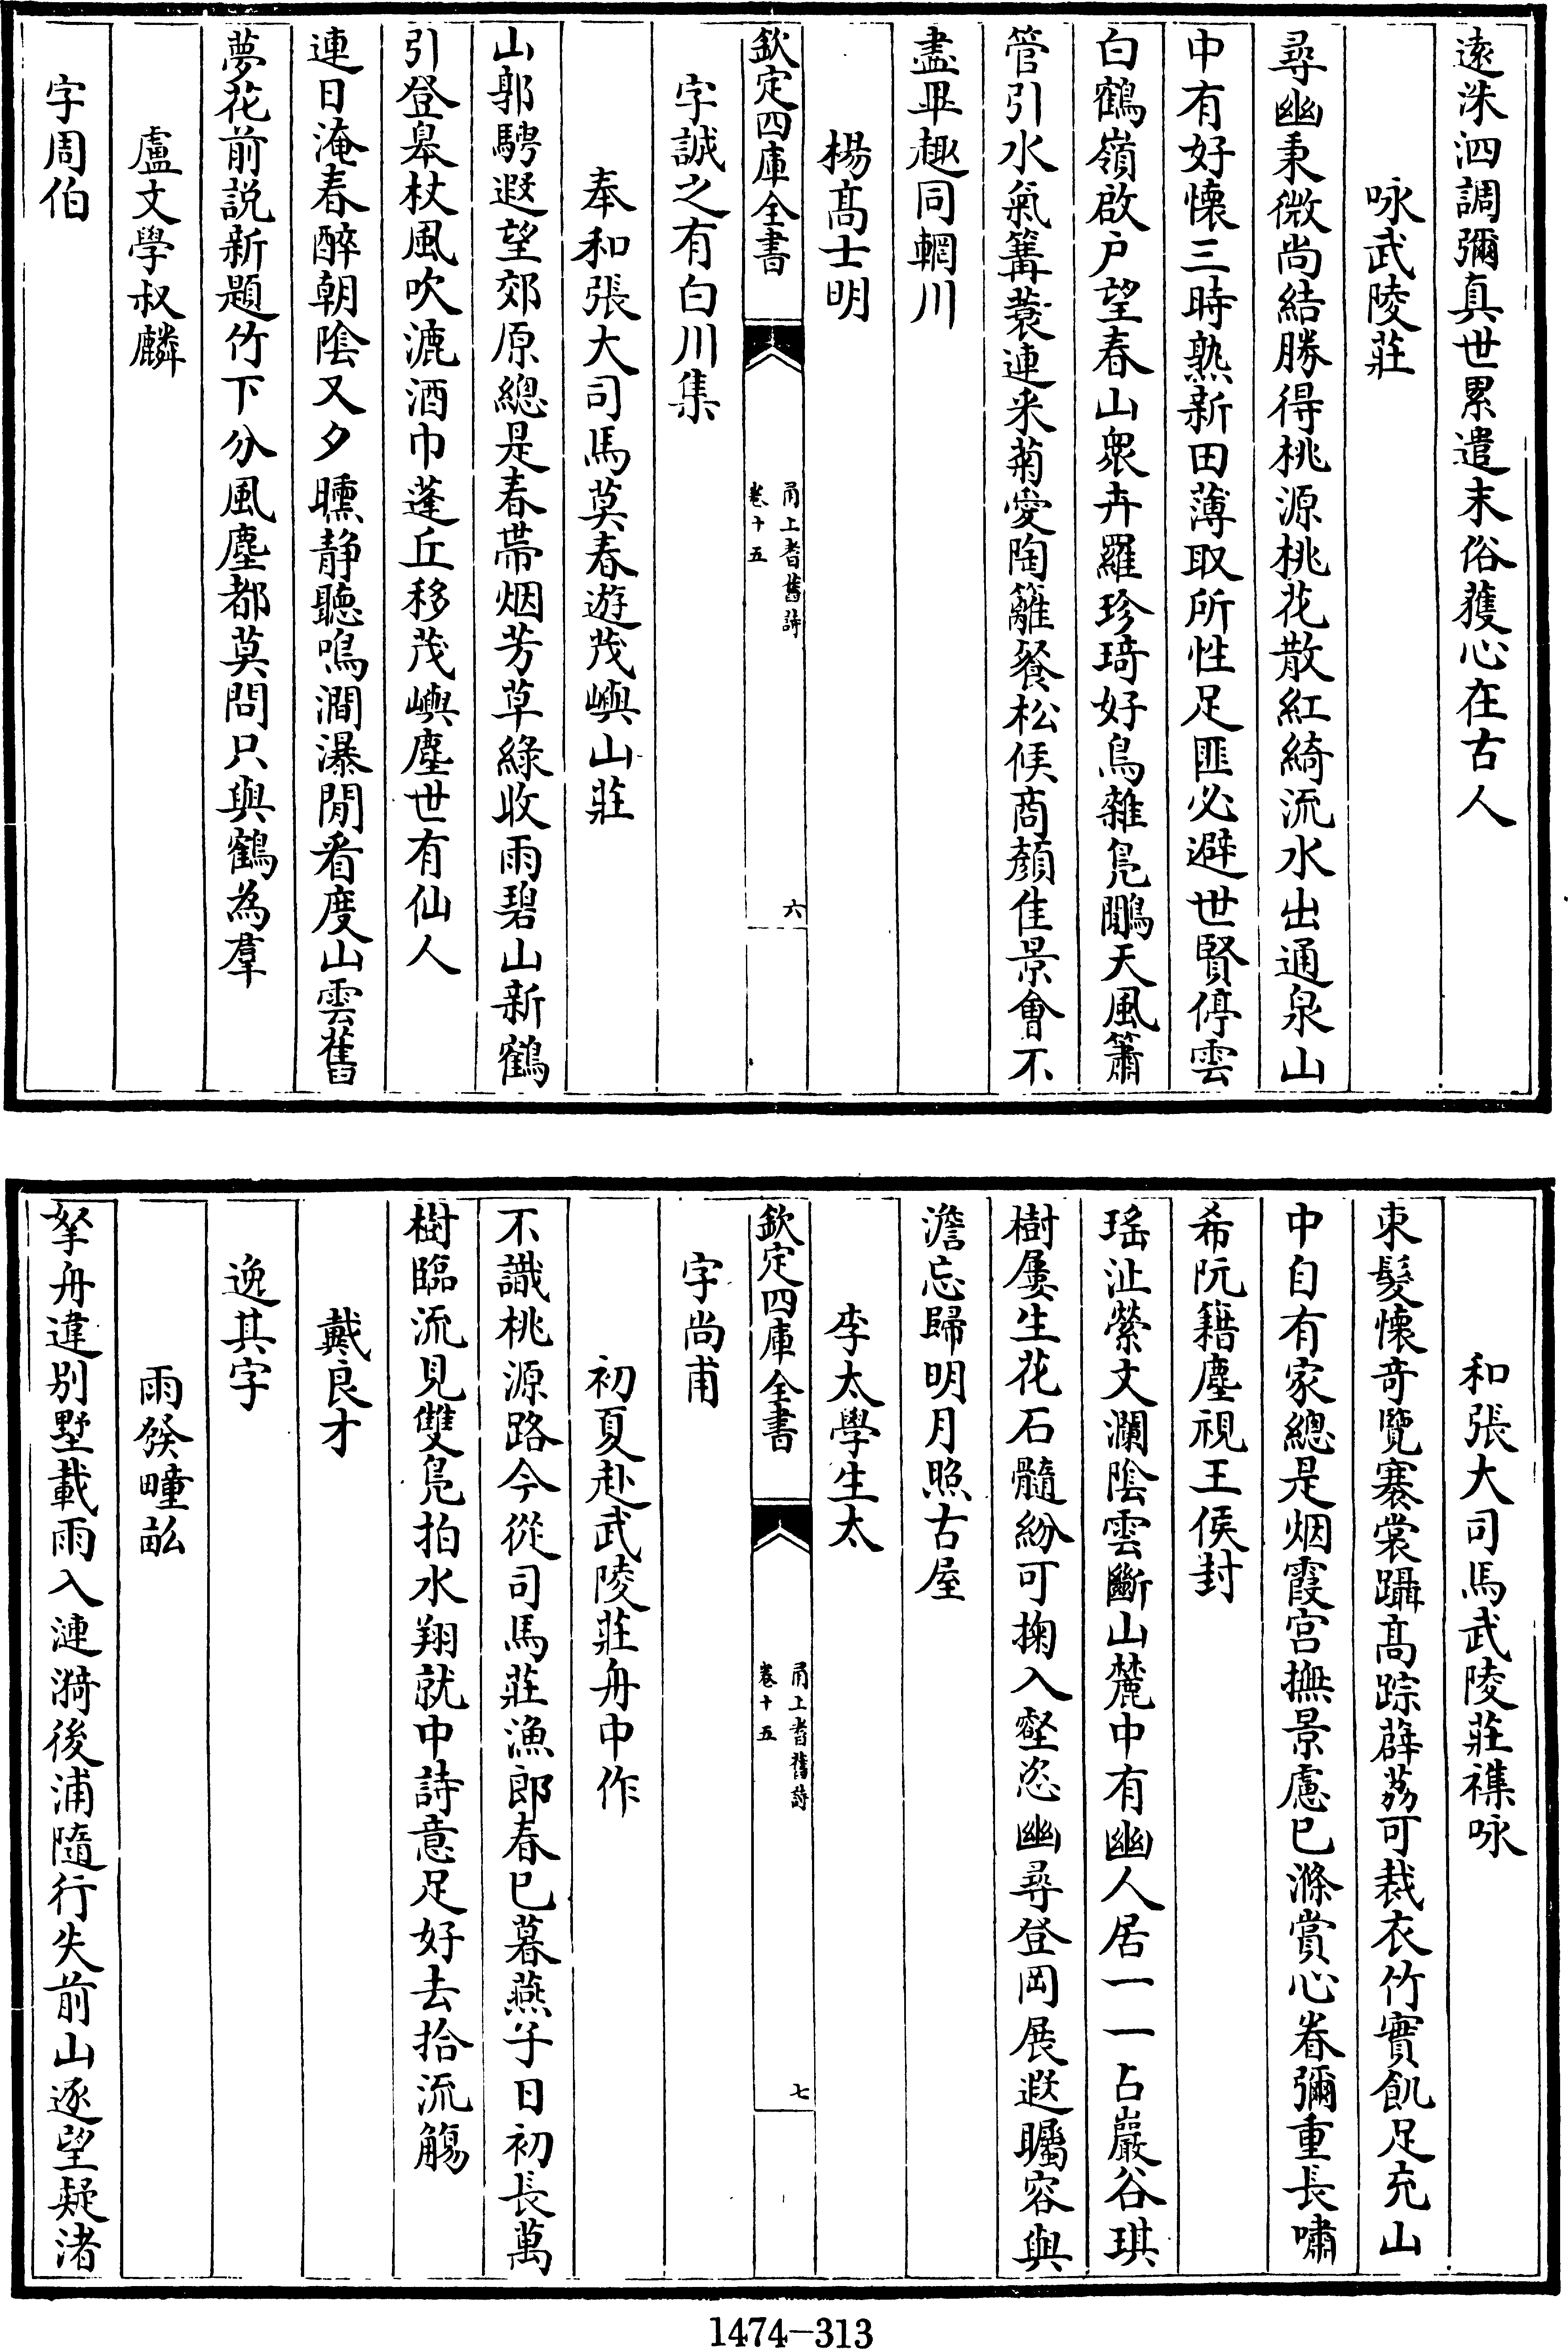 遠洙泗調彌真世累遣末俗蒦心在古人
咏武陵莊
尋幽秉微尚結勝得桃源桃花散紅綺流水出通泉山
中有好懷三時熟新田薄取所性足匪必避世賢停雲
白鶴嶺啟户望春山衆卉羅珍琦好鳥雜鳧鷴天風簫
管引水氣篝蓑連采菊愛陶籬餐松候商顏佳景會不
盡畢趣同輞川
楊髙士明
欽定四庫全書
甬上耆舊詩
卷十五
六
字誠之有白川集
奉和張大司馬莫春遊茂嶼山莊
山郭騁遐望郊原總是春帶烟芳草綠收雨碧山新鶴
引登皋杖風吹漉酒巾蓬丘移茂嶼塵世有仙人
連日淹春醉朝陰又夕曛静聽鳴澗瀑閒看度山雲舊
夢花前説新題竹下分風塵都莫問只與鶴為羣
盧文學叔麟
字周伯
和張大司馬武陵莊襍咏
束髮懷奇覽褰裳躡髙踪薜荔可裁衣竹實飢足充山
中自有家總是烟霞宫撫景慮已滌賞心眷彌重長嘯
希阮籍塵視王侯封
瑤沚縈文瀾陰雲斷山麓中有幽人居一一占巖谷琪
樹屢生花石髓紛可掬入壑恣幽尋登岡展遐矚容與
澹忘歸明月照古屋
李太學生太
欽定四庫全書
甬上耆舊詩
卷十五
七
字尚甫
初夏赴武陵莊舟中作
不識桃源路今從司馬莊漁郎春已暮燕子日初長萬
樹臨流見雙鳧拍水翔就中詩意足好去拾流觴
戴良才
逸其字
雨發疃畝
拏舟違别墅載雨入漣漪後浦隨行失前山逐望疑渚
1474-313